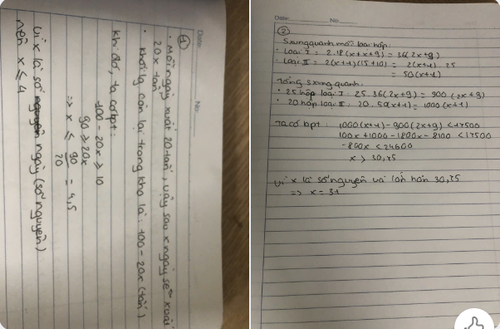 Date: No:
①
• Mỗi ngày xuất 20 tấn, vậy sau x ngày sẽ xuất
20x tấn
• Khối lg còn lại trong kho là: 100 - 20x (tấn)
Khi đó, ta có bpt:
100 - 20x ≥ 10
90 ≥ 20x
=> x ≤ 90/20 = 4,5
Vì x là số nguyên ngày (số nguyên)
nên x ≤ 4
Date: No:
②
Sxung quanh mỗi loại hộp:
• Loại I = 2.18(x+x+9) = 36(2x+9)
• Loại II = 2(x+1)(15+10) = 2(x+1).25
= 50(x+1)
Tổng Sxung quanh:
• 25 hộp loại I: 25.36(2x+9) = 900(2x+9)
• 20 hộp loại II = 20.50(x+1) = 1000(x+1)
Ta có bpt: 1000(x+1) - 900(2x+9) < 17500
100x + 1000 - 1800x - 8100 < 17500
-800x < 24600
x > 30,75
Vì x là số nguyên và lớn hơn 30,75
=> x = 31